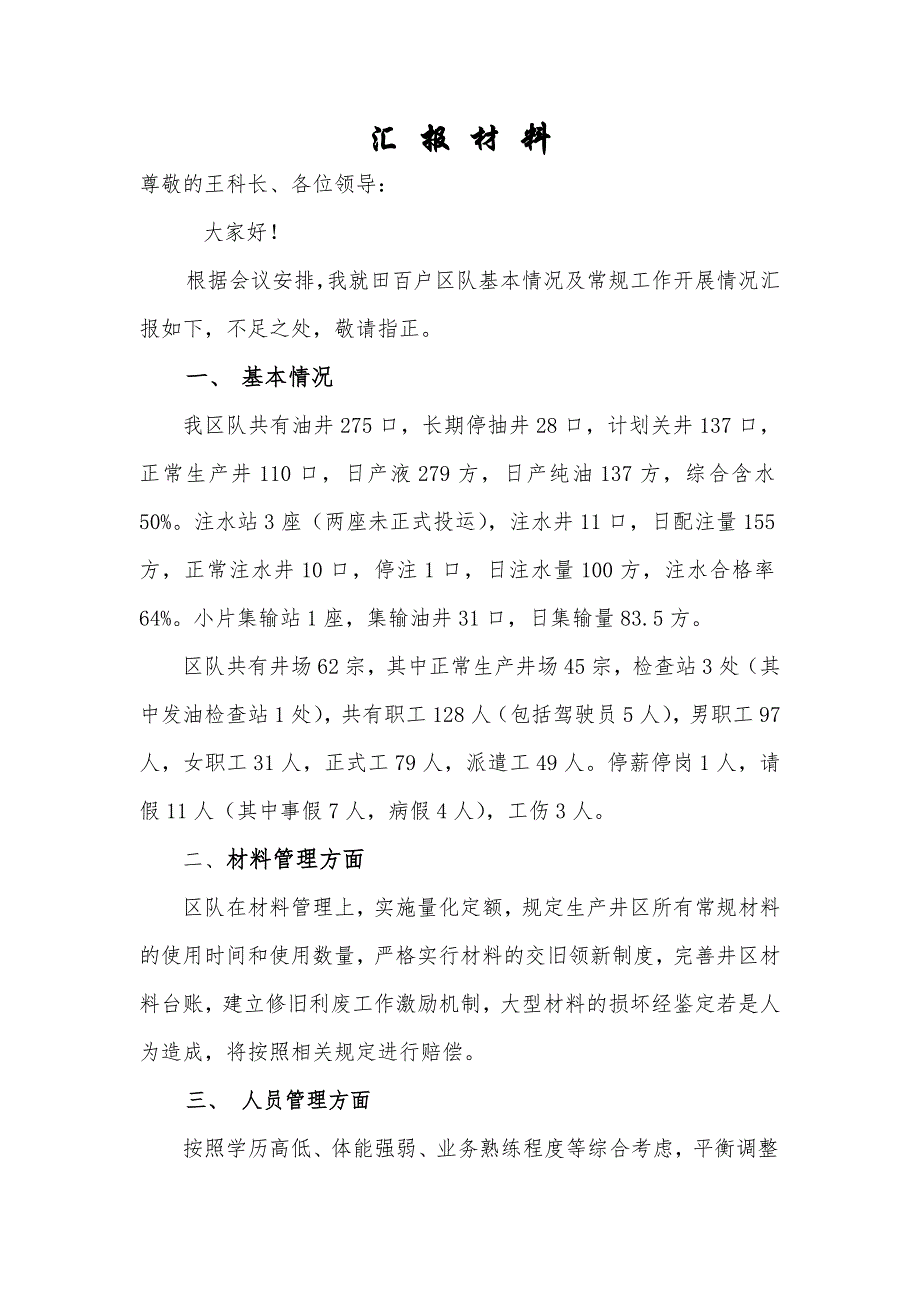 汇 报 材 料
尊敬的王科长、各位领导：
大家好！
根据会议安排,我就田百户区队基本情况及常规工作开展情况汇
报如下，不足之处，敬请指正。
一、 基本情况
我区队共有油井 275 口，长期停抽井 28 口，计划关井 137 口，
正常生产井 110 口，日产液 279 方，日产纯油 137 方，综合含水
50%。注水站 3 座（两座未正式投运），注水井 11 口，日配注量 155
方，正常注水井 10 口，停注 1 口，日注水量 100 方，注水合格率
64%。小片集输站 1 座，集输油井 31 口，日集输量 83.5 方。
区队共有井场 62 宗，其中正常生产井场 45 宗，检查站 3 处（其
中发油检查站 1 处），共有职工 128 人（包括驾驶员 5 人），男职工 97
人，女职工 31 人，正式工 79 人，派遣工 49 人。停薪停岗 1 人，请
假 11 人（其中事假 7 人，病假 4 人），工伤 3 人。
二、材料管理方面
区队在材料管理上，实施量化定额，规定生产井区所有常规材料
的使用时间和使用数量，严格实行材料的交旧领新制度，完善井区材
料台账，建立修旧利废工作激励机制，大型材料的损坏经鉴定若是人
为造成，将按照相关规定进行赔偿。
三、 人员管理方面
按照学历高低、体能强弱、业务熟练程度等综合考虑，平衡调整